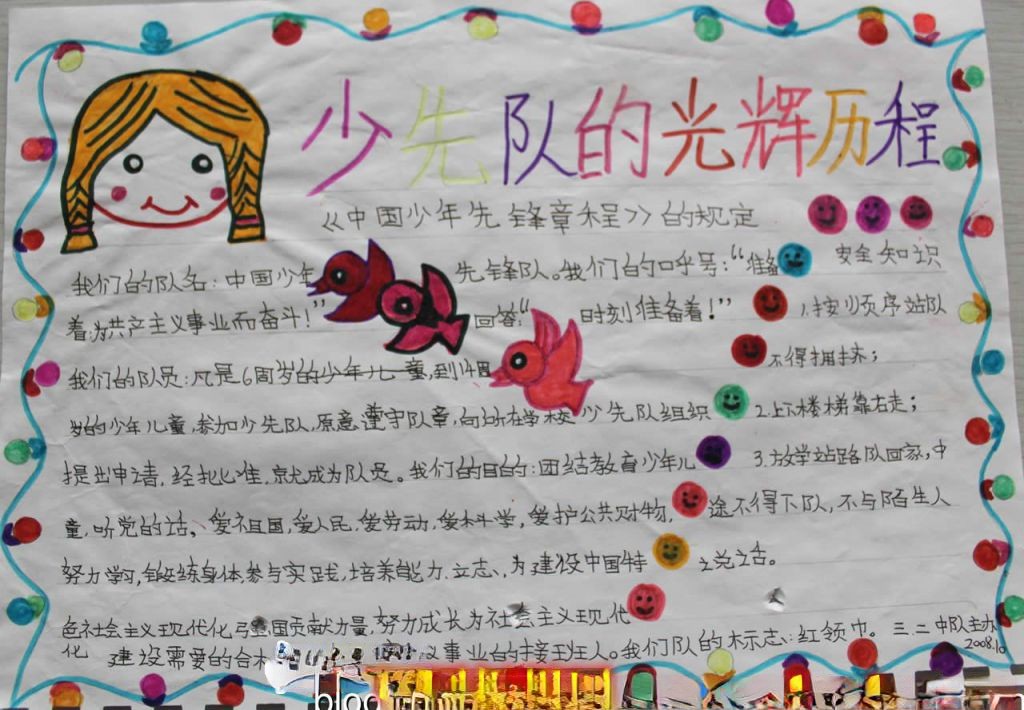 少先队的光辉历程
《中国少年先锋章程》的规定
我们的队名：中国少年先锋队。我们的口乎号：“准备
着：为共产主义事业而奋斗！”回答：“时刻准备着！”
我们的队员：凡是6周岁的少年儿童，到14周
岁的少年儿童，参加少先队，原意遵守队章，向所在学校少先队组织
提出申请，经批准，就成为队员。我们的目的：团结教育少年儿
童，听党的话、爱祖国，爱人民，爱劳动，爱科学，爱护公共财物，
努力学习，锻练身体，参与实践，培养能力，立志、为建设中国特
色社会主义现代化 国贡献力量，努力成长为社会主义现代
化建设需要的合 义事业的接班人。我们队的标志：红领巾。
安全知识
1.按顺序站队
不得拥挤；
2.上下楼梯靠右走；
3.放学站路队回家，中
途不得下队，不与陌生人
说话。
三.二中队主办
2008.10
blog